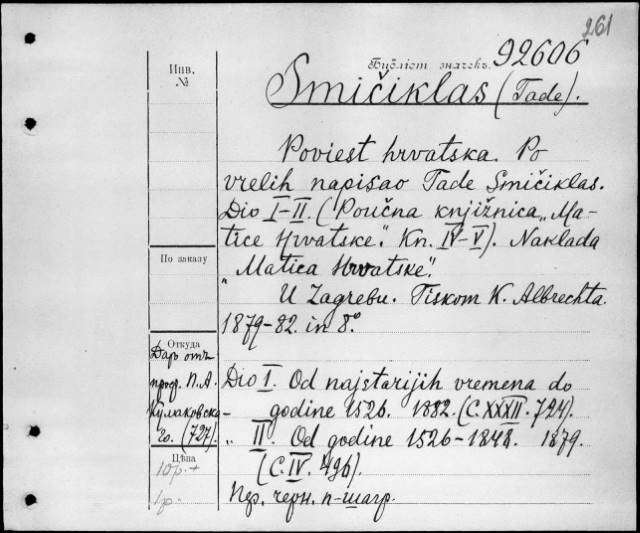 261
Бубліот. значекъ. 92606
Smičiklas (Tade).
Инв.
№
Poviest hrvatska. Po
vrelih napisao Tade Smičiklas.
Dio I–II. (Poučna knjižnica „Ma-
tice Hrvatske“. Kn. IV–V). Naklada
„Matica Hrvatske“.
U Zagrebu. Tiskom K. Albrechta.
1879–82. in 8º.
По заказу
Откуда
Даръ отъ
проф. П. А.
Кулаковска-
го. (727).
Цѣна
10р. +
1р.
Dio I. Od najstarijih vremena do
godine 1526. 1882. (C. XXXII. 724).
„ II. Od godine 1526–1848. 1879.
(C. IV. 496).
Пер. черн. п-шагр.